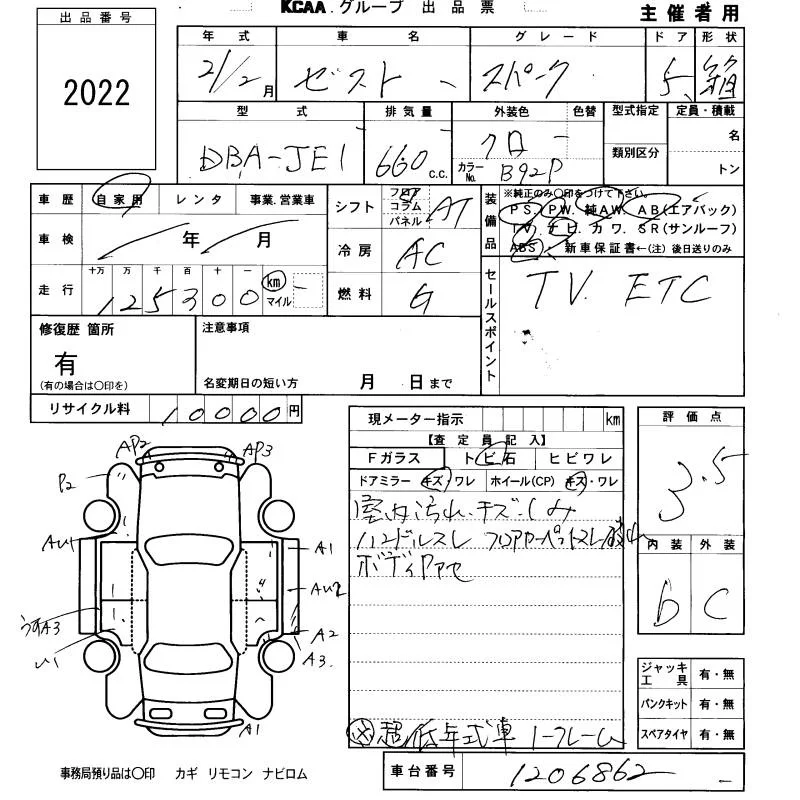 KCAA.グループ 出品票
主催者用
出品番号
2022
年式 車名 グレード ドア 形状
21/2月 ゼスト スパーク 5 箱
型式 排気量 外装色 色替 型式指定 定員・積載
DBA-JE1 660 c.c. クロ 名
カラーNo. B92P 類別区分 トン
車歴 自家用 レンタ 事業.営業車
車検 年 月
走行 十万 万 千 百 十 一
125300 km マイル
シフト フロア コラム パネル AT
冷房 AC
燃料 G
装備品
※純正のみ〇印をつけて下さい。
PS. PW. 純AW. AB(エアバック)
TV. ナビ. カワ. SR(サンルーフ)
ABS. 新車保証書←(注)後日送りのみ
セールスポイント
TV. ETC
修復歴 箇所
有
(有の場合は〇印を)
注意事項
名変期日の短い方 月 日まで
リサイクル料 10000円
現メーター指示 km
【査定員記入】
Fガラス トビ石 ヒビワレ
ドアミラー キズ・ワレ ホイール(CP) キズ・ワレ
室内汚れ.キズ.シミ
ハンドルスレ フロアカーペットスレ
ボディ
※超低年式車
評価点
3.5
内装 外装
D C
AP2 AP3
P2
AU1 A1
AU2
うすA3 A2
A3
A1
ジャッキ工具 有・無
パンクキット 有・無
スペアタイヤ 有・無
事務局預り品は〇印 カギ リモコン ナビロム
車台番号 1206862